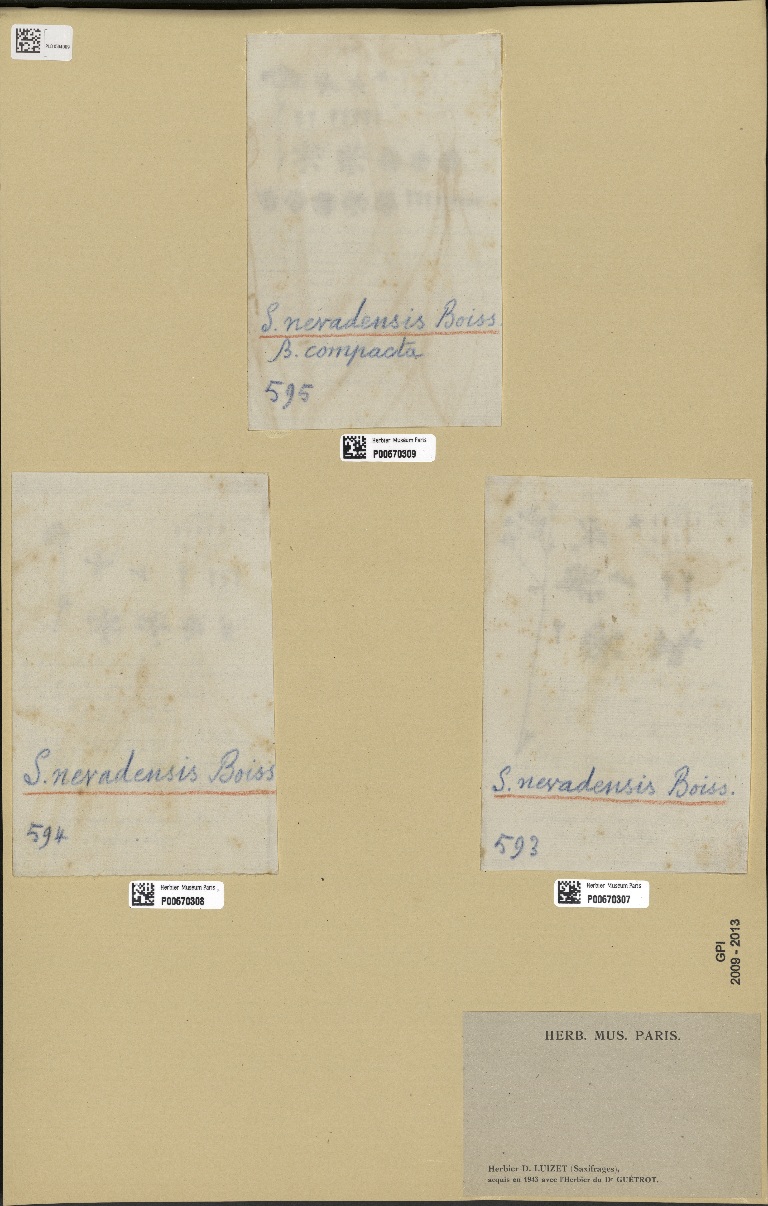 S. nevadensis Boiss.
B. compacta
595
Herbier Museum Paris
P00670309
S. nevadensis Boiss
594
Herbier Museum Paris
P00670308
S. nevadensis Boiss.
593
Herbier Museum Paris
P00670307
GPI
2009 - 2013
HERB. MUS. PARIS.
Herbier D. LUIZET (Saxifrages),
acquis en 1943 avec l'Herbier du Dr GUÉTROT.